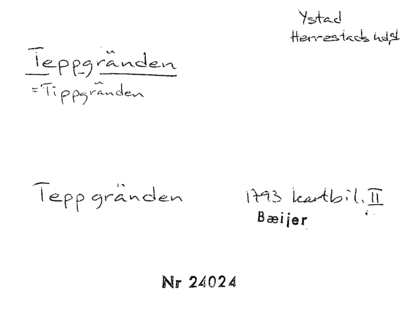 Ystad
Herrestads hd, sk
Teppgränden
= Tippgränden
Teppgränden 1793 kartbil. II
Bæijer
Nr 24024